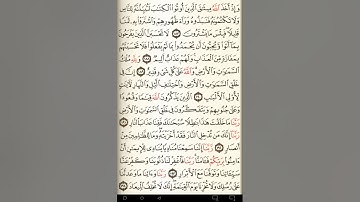 وَإِذْ أَخَذَ ٱللَّهُ مِيثَٰقَ ٱلَّذِينَ أُوتُوا۟ ٱلْكِتَٰبَ لَتُبَيِّنُنَّهُۥ لِلنَّاسِ
وَلَا تَكْتُمُونَهُۥ فَنَبَذُوهُ وَرَآءَ ظُهُورِهِمْ وَٱشْتَرَوْا۟ بِهِۦ ثَمَنًا
قَلِيلًا فَبِئْسَ مَا يَشْتَرُونَ ١٨٧ لَا تَحْسَبَنَّ ٱلَّذِينَ يَفْرَحُونَ
بِمَآ أَتَوا۟ وَّيُحِبُّونَ أَن يُحْمَدُوا۟ بِمَا لَمْ يَفْعَلُوا۟ فَلَا تَحْسَبَنَّهُم
بِمَفَازَةٍ مِّنَ ٱلْعَذَابِ وَلَهُمْ عَذَابٌ أَلِيمٌ ١٨٨ وَلِلَّهِ مُلْكُ
ٱلسَّمَٰوَٰتِ وَٱلْأَرْضِ وَٱللَّهُ عَلَىٰ كُلِّ شَىْءٍ قَدِيرٌ ١٨٩ إِنَّ فِى
خَلْقِ ٱلسَّمَٰوَٰتِ وَٱلْأَرْضِ وَٱخْتِلَٰفِ ٱلَّيْلِ وَٱلنَّهَارِ لَءَايَٰتٍ
لِّأُو۟لِى ٱلْأَلْبَٰبِ ١٩٠ ٱلَّذِينَ يَذْكُرُونَ ٱللَّهَ قِيَٰمًا وَقُعُودًا
وَعَلَىٰ جُنُوبِهِمْ وَيَتَفَكَّرُونَ فِى خَلْقِ ٱلسَّمَٰوَٰتِ وَٱلْأَرْضِ
رَبَّنَا مَا خَلَقْتَ هَٰذَا بَٰطِلًا سُبْحَٰنَكَ فَقِنَا عَذَابَ ٱلنَّارِ ١٩١
رَبَّنَآ إِنَّكَ مَن تُدْخِلِ ٱلنَّارَ فَقَدْ أَخْزَيْتَهُۥ وَمَا لِلظَّٰلِمِينَ مِنْ
أَنصَارٍ ١٩٢ رَّبَّنَآ إِنَّنَا سَمِعْنَا مُنَادِيًا يُنَادِى لِلْإِيمَٰنِ أَنْ
ءَامِنُوا۟ بِرَبِّكُمْ فَـَٔامَنَّا رَبَّنَا فَٱغْفِرْ لَنَا ذُنُوبَنَا وَكَفِّرْ عَنَّا
سَيِّـَٔاتِنَا وَتَوَفَّنَا مَعَ ٱلْأَبْرَارِ ١٩٣ رَبَّنَا وَءَاتِنَا مَا وَعَدتَّنَا
عَلَىٰ رُسُلِكَ وَلَا تُخْزِنَا يَوْمَ ٱلْقِيَٰمَةِ إِنَّكَ لَا تُخْلِفُ ٱلْمِيعَادَ ١٩٤